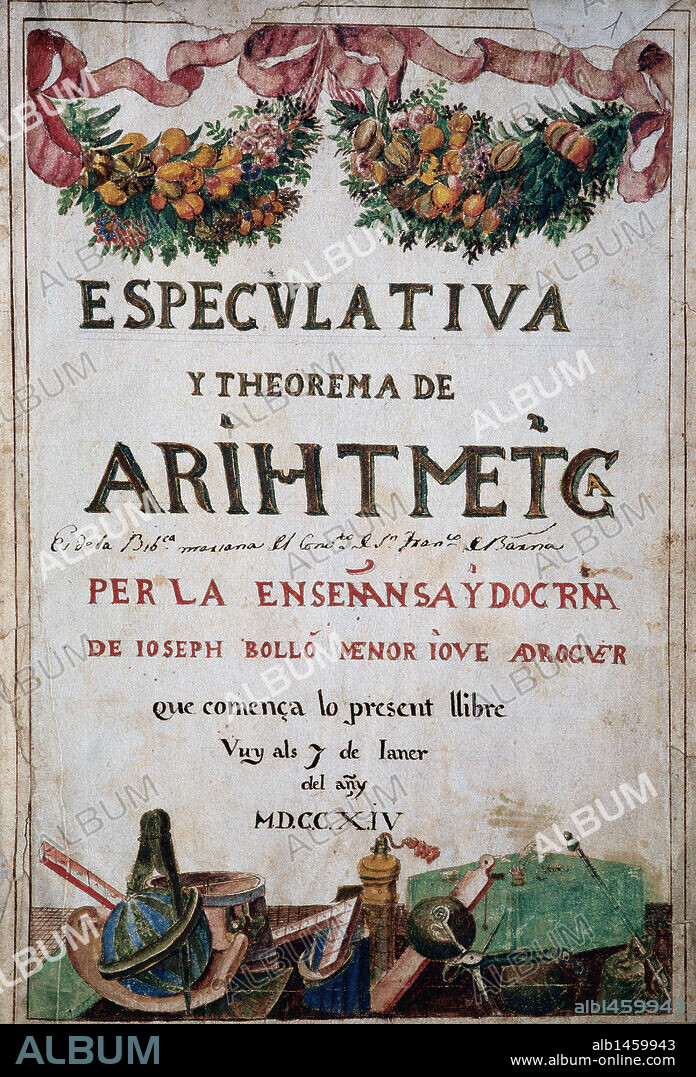 1
ESPECVLATIVA
Y THEOREMA DE
ARIHTMETCA
Es de la Bib.ca mariana del Conv.to de S.n Fran.co de Barna
PER LA ENSEÑANSA Y DOCTRINA
DE IOSEPH BOLLÓ MENOR IOVE ADROGVER
que comença lo present llibre
Vuy als 7 de Ianer
del añy
M.D.C.C.X.IV
ALBUM
alb1459943
ALBUM
alb1459943
www.album-online.com